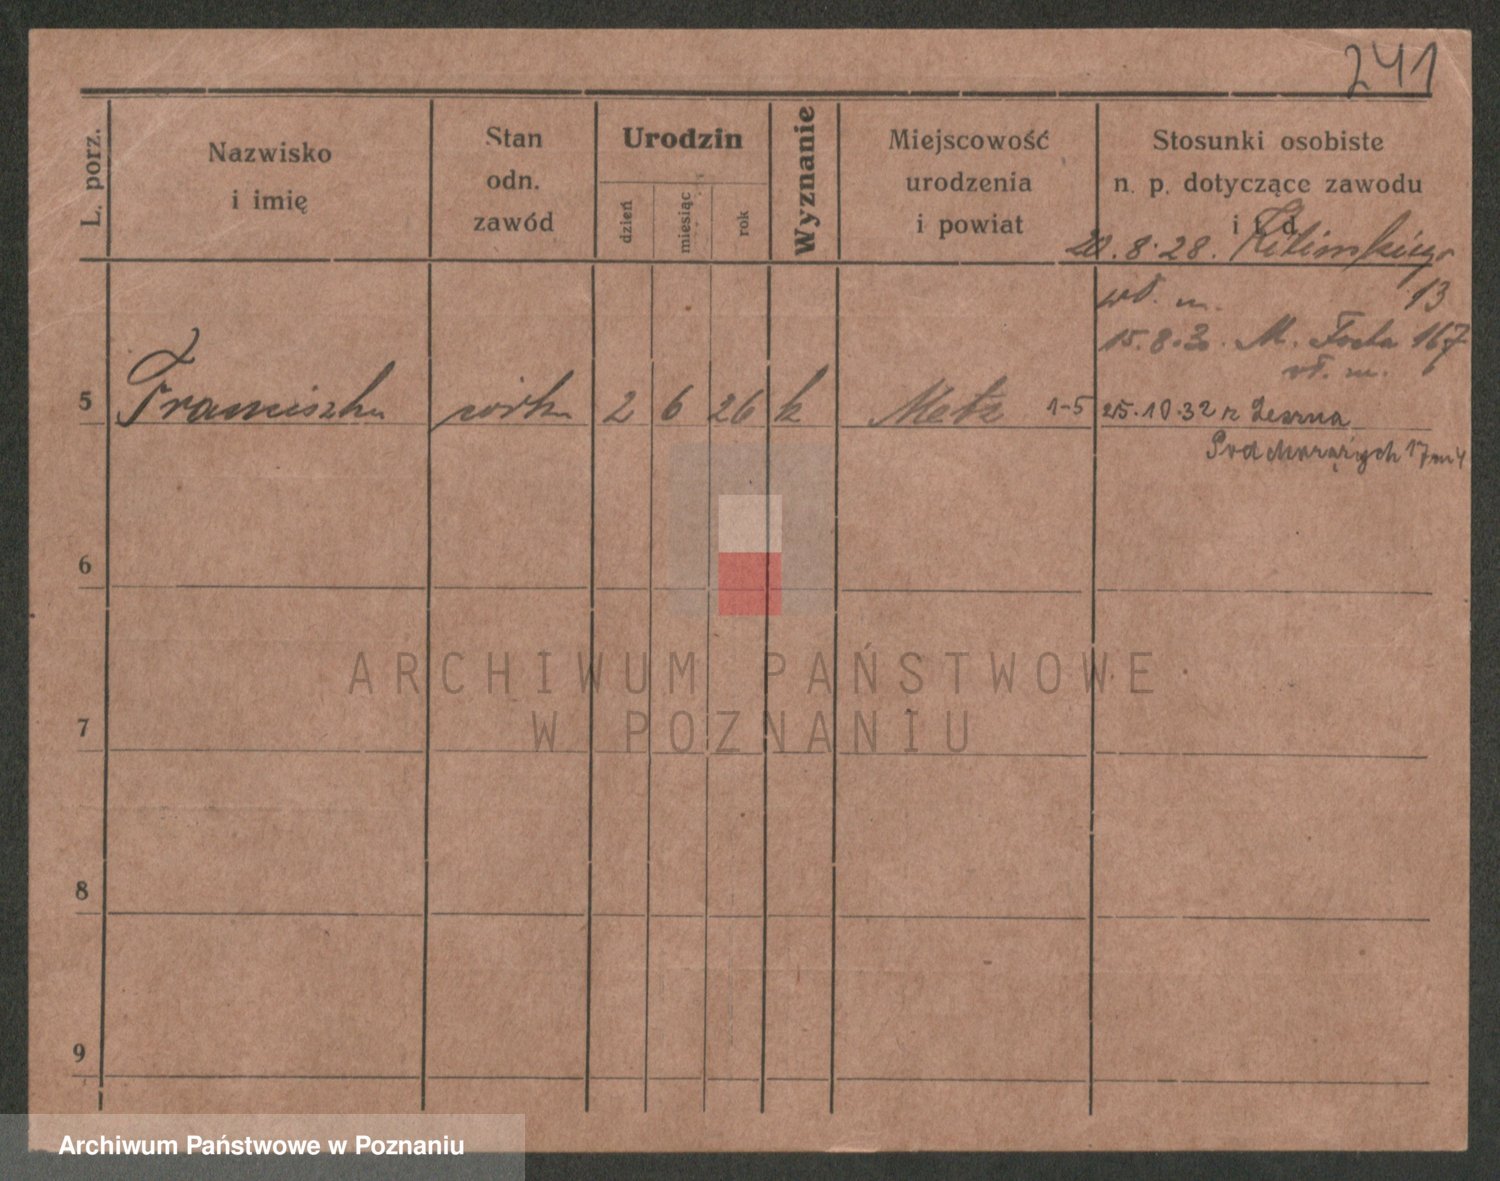 241
L. porz.
Nazwisko
i imię
Stan
odn.
zawód
Urodzin
dzień
miesiąc
rok
Wyznanie
Miejscowość
urodzenia
i powiat
Stosunki osobiste
n. p. dotyczące zawodu
i t d.
20.8.28. Kilińskiego
wł. m. 13
15.8.3 . M. Focha 167
wł. m.
5 Franciszka córka 2 6 26 k Metz 1-5 25.10.32 z Leszna
Podchorążych 17 m 4
6
7
8
9
ARCHIWUM PAŃSTWOWE
W POZNANIU
Archiwum Państwowe w Poznaniu